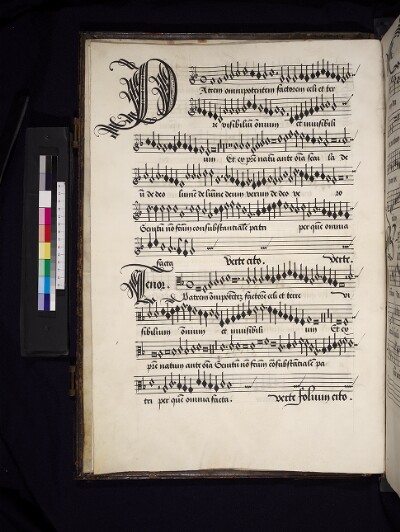 Atrem omnipotentem factorem celi et ter
re visibiliū omniū et invisibili
um Et ex pr̄e natū ante oīa secu la de
ū de deo lumē de lumīe deum verum de deo ve ro
Genitū nō factū consubstantialē patri per quē omnia
facta verte cito. verte.
Tenor. Patrem omnipotētez factorē celi et terre vi
sibilium omnium et invisibili um Et ex
pr̄e natum ante oīa Genitū nō factū cōsubstātialē pa
tri per quē omnia facta. verte folium cito.